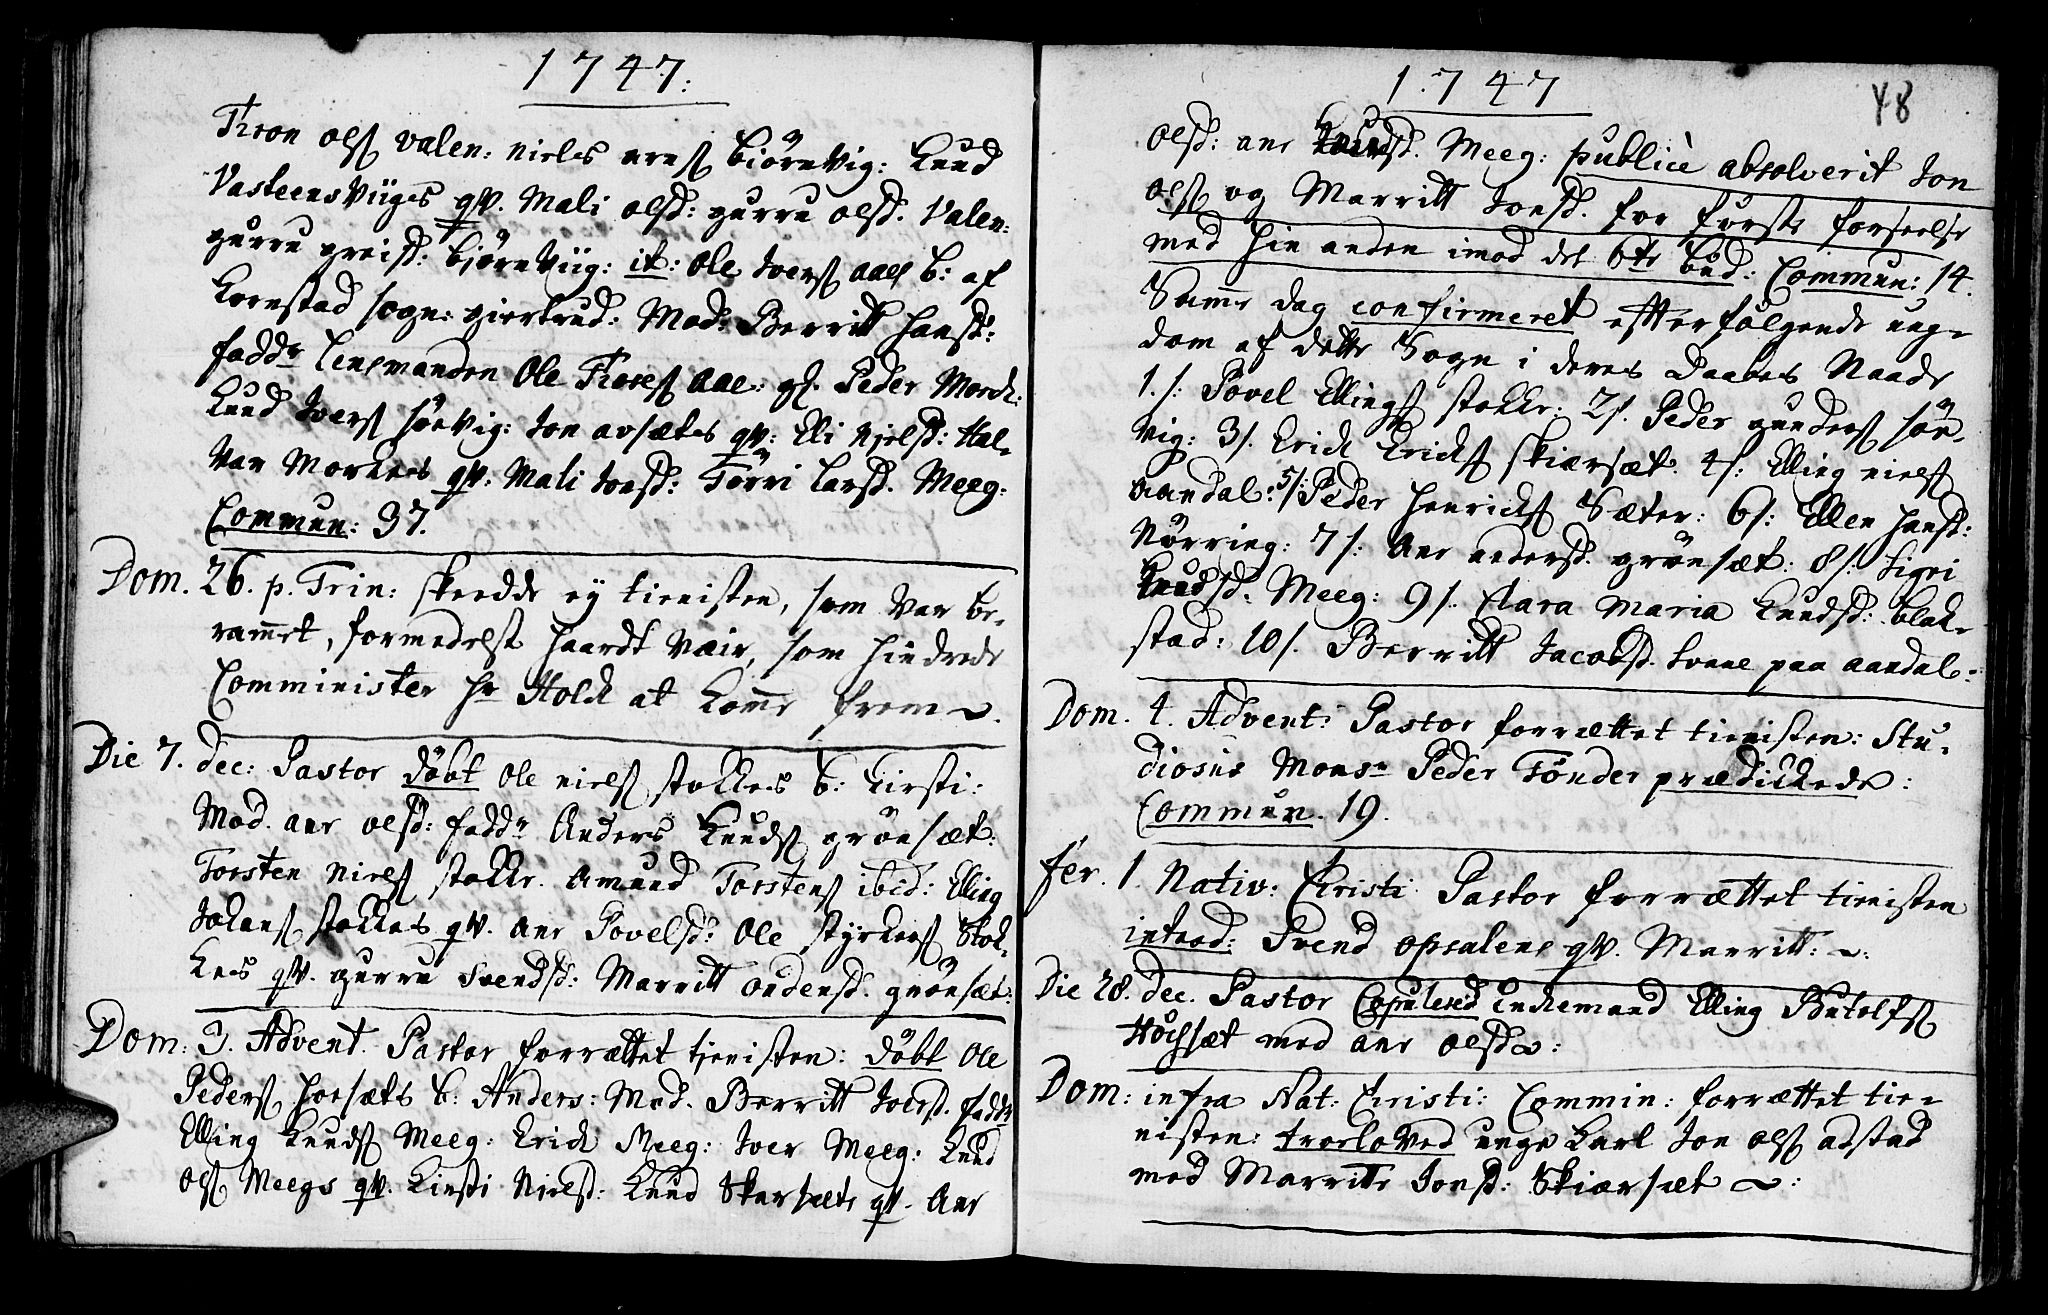 1747.
Tron olsß valen: niels arnsß biörnvig: Knud
Vasteensviiges qv. Mali olsd: gurru olsd. Valen:
gurru greisd: biörnviig: it: ole Joersß aaes b: af
Kornstad sogn: giertrud: Mod: Berritt hansd:
fadd.r lensmanden ole Troesß aae: gl. Peder Morch:
Knud Joersß sörvig: Jon avsætes qv: Eli Njelsd: Hal-
var Morches qv: Mali Jonsd: Torri larsd. Meeg:
Commun: 37.
Dom. 26. p. Trin: skeedde ey tienisten, som var be-
ram̄et, formedelst haardt Væir, som hindrede
Comminister Hr Holck at kom̄e frem.
Die 7. dec: Pastor döbt ole nielsß stokkes b: kirsti:
Mod. ane olsd: fadd.r Anders Knudsß grönsæt:
Torsten nielsß stokke. Amund Torstensß ibid: Elling
Johansß stokkes qv. ane Povelsd: ole styrkersß Stok-
kes qv. gurru Svendsd: Marritt oudensd. grönsæt:
Dom: 3. Advent. Pastor forrættet tjenisten: döbt ole
Pedersß horsæts b: Anders: Mod. Berritt Joersd. fadd.r
Elling Knudsß Meeg: Erick Meeg: Joer Meeg: Knud
olsß Meegs qv. Kirsti Njelsd: Knud Skarsætes qv. Ane
1747
48
olsd: ane Knudsd. Meeg: publicè absolverit Jon
olsß og Marritt Jonsd. for første forseelse
med hin anden imod det 6te bud: Commun: 14.
Sam̄e dag confirmeret effterfølgende ung-
dom af dette Sogn i deres Daabes Naade
1./: Povel Ellingsß stokke: 2/. Peder gundersß sör-
vig: 3/. Erick Ericksß skiærsæt: 4/: Elling nielsß
aandal: 5/: Peder Henricksß Sæter: 6/: Ellen hansd:
Nörring: 7/: Ane andersd. grönsæt: 8/: Sigri
Knudsd: Meeg: 9/. Clara Maria Knudsd: blak-
stad: 10/. Berritt Jacobsd. tvene paa aandal:
Dom. 4. Advent: Pastor forrættet tienisten: Stu-
diosus Monsr Peder Tønder prædickede:
Commun. 19.
fer. 1. Nativ: Christi Pastor forrættet tienisten
introd: Svend opsalens qv. Marritt:
Die 28. dec. Pastor Copulered Enckemand Elling Butolfsß
Höchsæt med ane olsd:
Dom: infra Nat: Christi: Commin: forrættet tie-
nisten: troeloved unge karl Jon olsß adstad
med Marritte Jonsd: Skiærsæt: